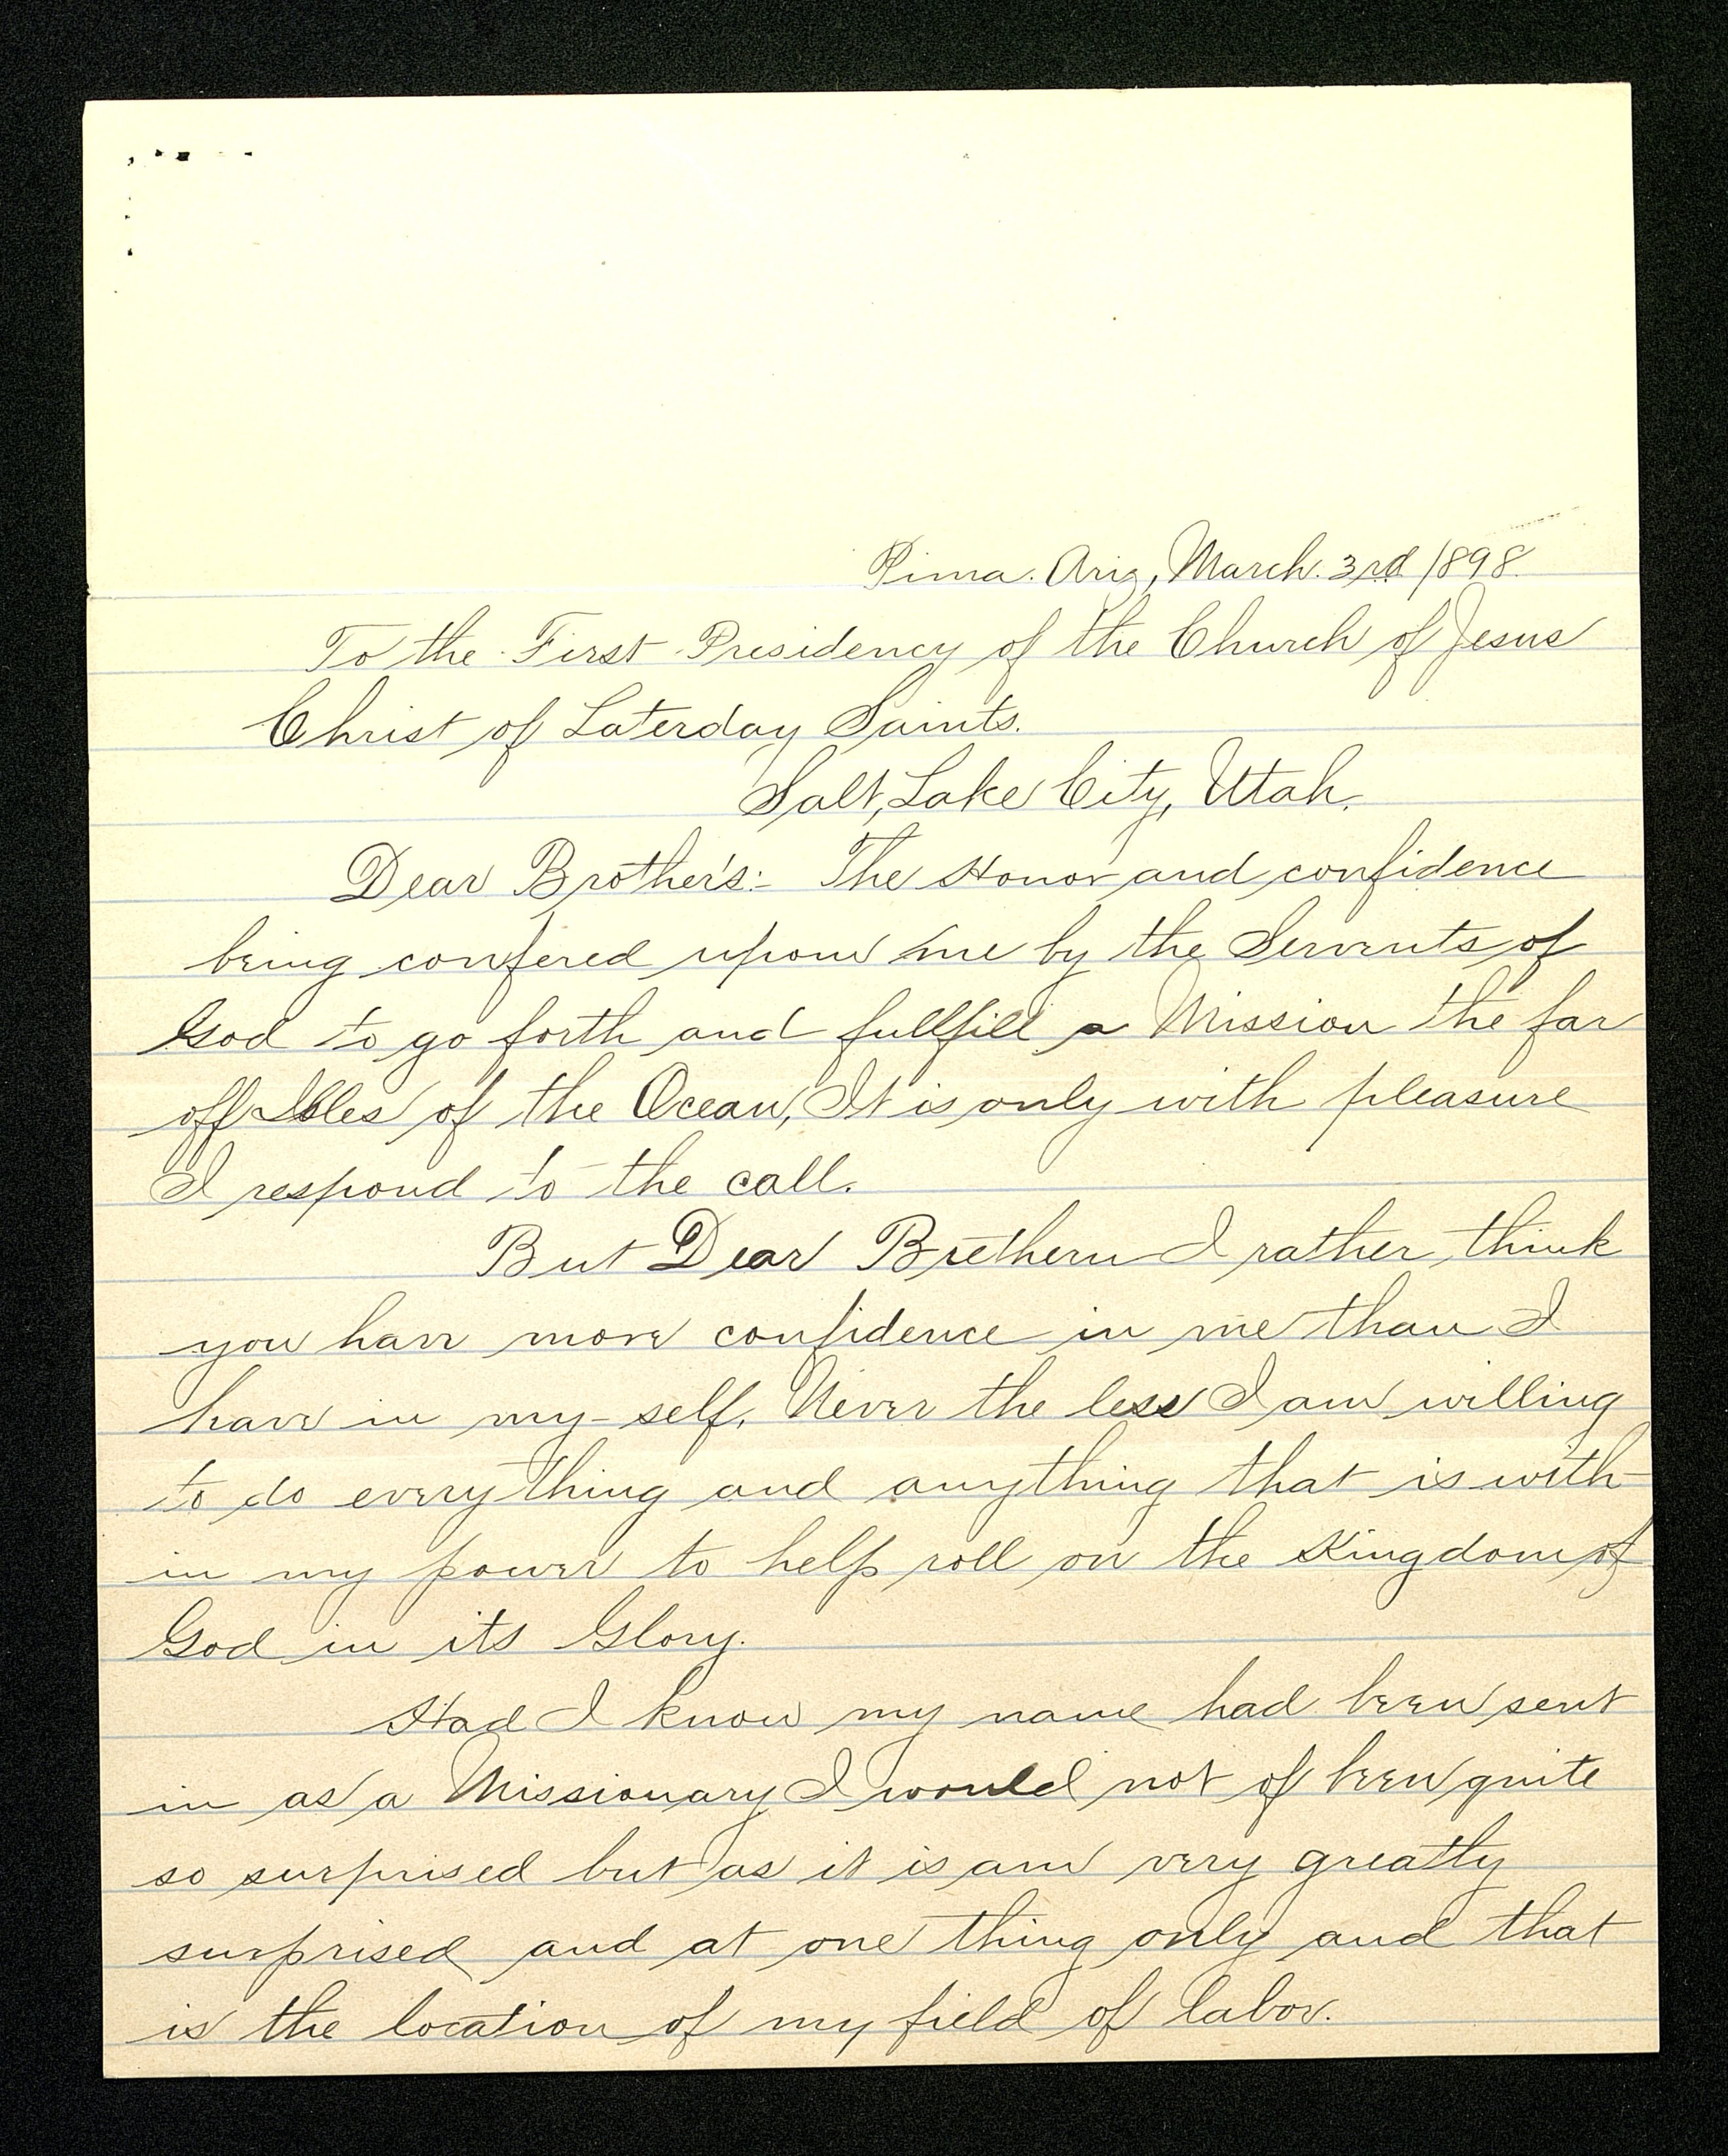 Pima. Ariz, March. 3rd 1898.
To the First Presidency of the Church of Jesus
Christ of Laterday Saints.
Salt, Lake City, Utah.
Dear Brother's:- The Honor and confidence
being confered upon me by the Servents of
God to go forth and fullfill a Mission the far
off Isles of the Ocean, It is only with pleasure
I respond to the call.
But Dear Brethern I rather think
you have more confidence in me than I
have in my-self. Never the less I am willing
to do everything and anything that is with-
in my power to help roll on the Kingdom of
God in its Glory.
Had I know my name had been sent
in as a Missionary I would not of been quite
so surprised but as it is am very greatly
surprised and at one thing only and that
is the location of my field of labor.